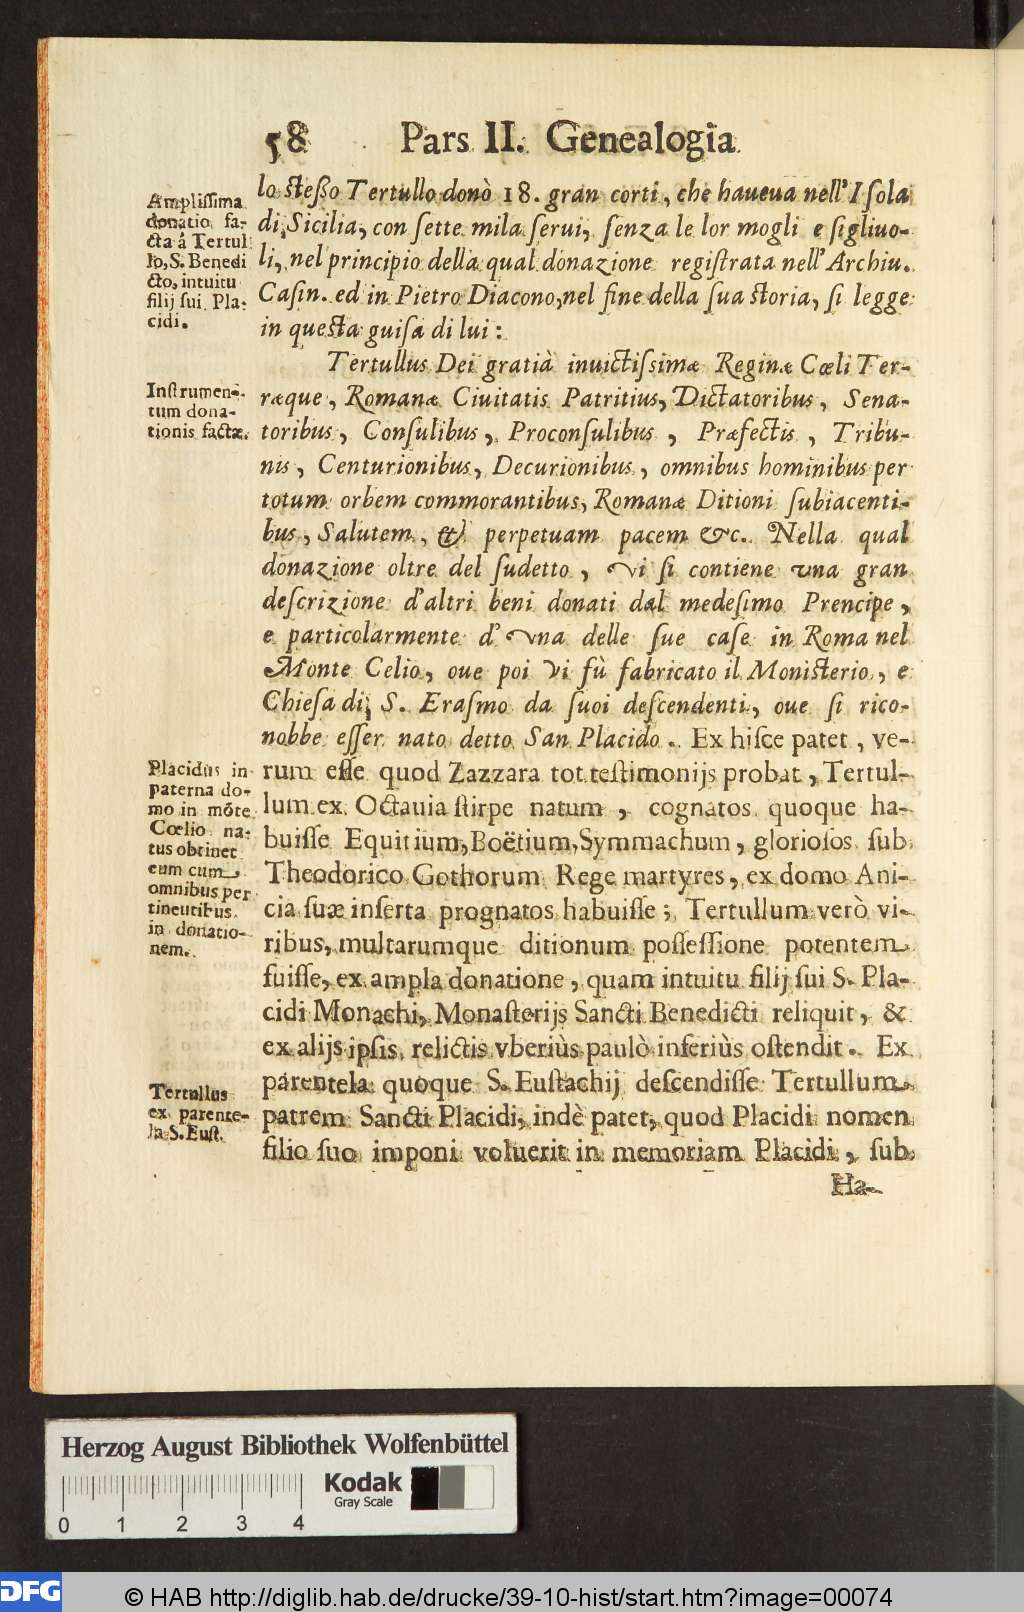 58 Pars II. Genealogia
lo steſſo Tertullo donò 18. gran corti, che haueua nell'Iſola
di Sicilia, con ſette mila ſerui, ſenza le lor mogli e figliuo-
li, nel principio della qual donazione regiſtrata nell'Archiu.
Caſin. ed in Pietro Diacono, nel fine della ſua ſtoria, ſi legge
in queſta guiſa di lui:
Ampliſſima
donatio fa-
cta á Tertul
lo, S. Benedi
cto, intuitu
filij ſui Pla-
cidi.
Tertullus Dei gratià inuictiſsimæ Reginæ Cœli Ter-
ræque, Romanæ Ciuitatis Patritius, Dictatoribus, Sena-
toribus, Conſulibus, Proconſulibus, Præfectis, Tribu-
nis, Centurionibus, Decurionibus, omnibus hominibus per
totum orbem commorantibus, Romanæ Ditioni ſubiacenti-
bus, Salutem, & perpetuam pacem &c. Nella qual
donazione oltre del ſudetto, vi ſi contiene vna gran
deſcrizione d'altri beni donati dal medeſimo Prencipe,
e particolarmente d'vna delle ſue caſe in Roma nel
Monte Celio, oue poi vi fù fabricato il Moniſterio, e
Chieſa di S. Eraſmo da ſuoi deſcendenti, oue ſi rico-
nobbe eſſer nato detto San Placido. Ex hiſce patet, ve-
rum eſſe quod Zazzara tot teſtimonijs probat, Tertul-
lum ex Octauia ſtirpe natum, cognatos quoque ha-
buiſſe Equitium, Boëtium, Symmachum, glorioſos ſub
Theodorico Gothorum Rege martyres, ex domo Ani-
cia ſuæ inſerta prognatos habuiſſe; Tertullum verò vi-
ribus, multarumque ditionum poſſeſſione potentem
fuiſſe, ex ampla donatione, quam intuitu filij ſui S. Pla-
cidi Monachi, Monaſterijs Sancti Benedicti reliquit, &
ex alijs ipſis relictis vberiùs paulò inferiùs oſtendit. Ex
parentela quoque S. Euſtachij deſcendiſſe Tertullum
patrem Sancti Placidi, indè patet, quod Placidi nomen
filio ſuo imponi voluerit in memoriam Placidi, ſub
Ha-
Inſtrumen-
tum dona-
tionis factæ.
Placidus in
paterna do-
mo in mōte
Cœlio na-
tus obtinet
eum cum
omnibus per
tinentibus
in donatio-
nem.
Tertullus
ex parente-
la S. Euſt.
Herzog August Bibliothek Wolfenbüttel
Kodak
Gray Scale
0 1 2 3 4
DFG
© HAB http://diglib.hab.de/drucke/39-10-hist/start.htm?image=00074